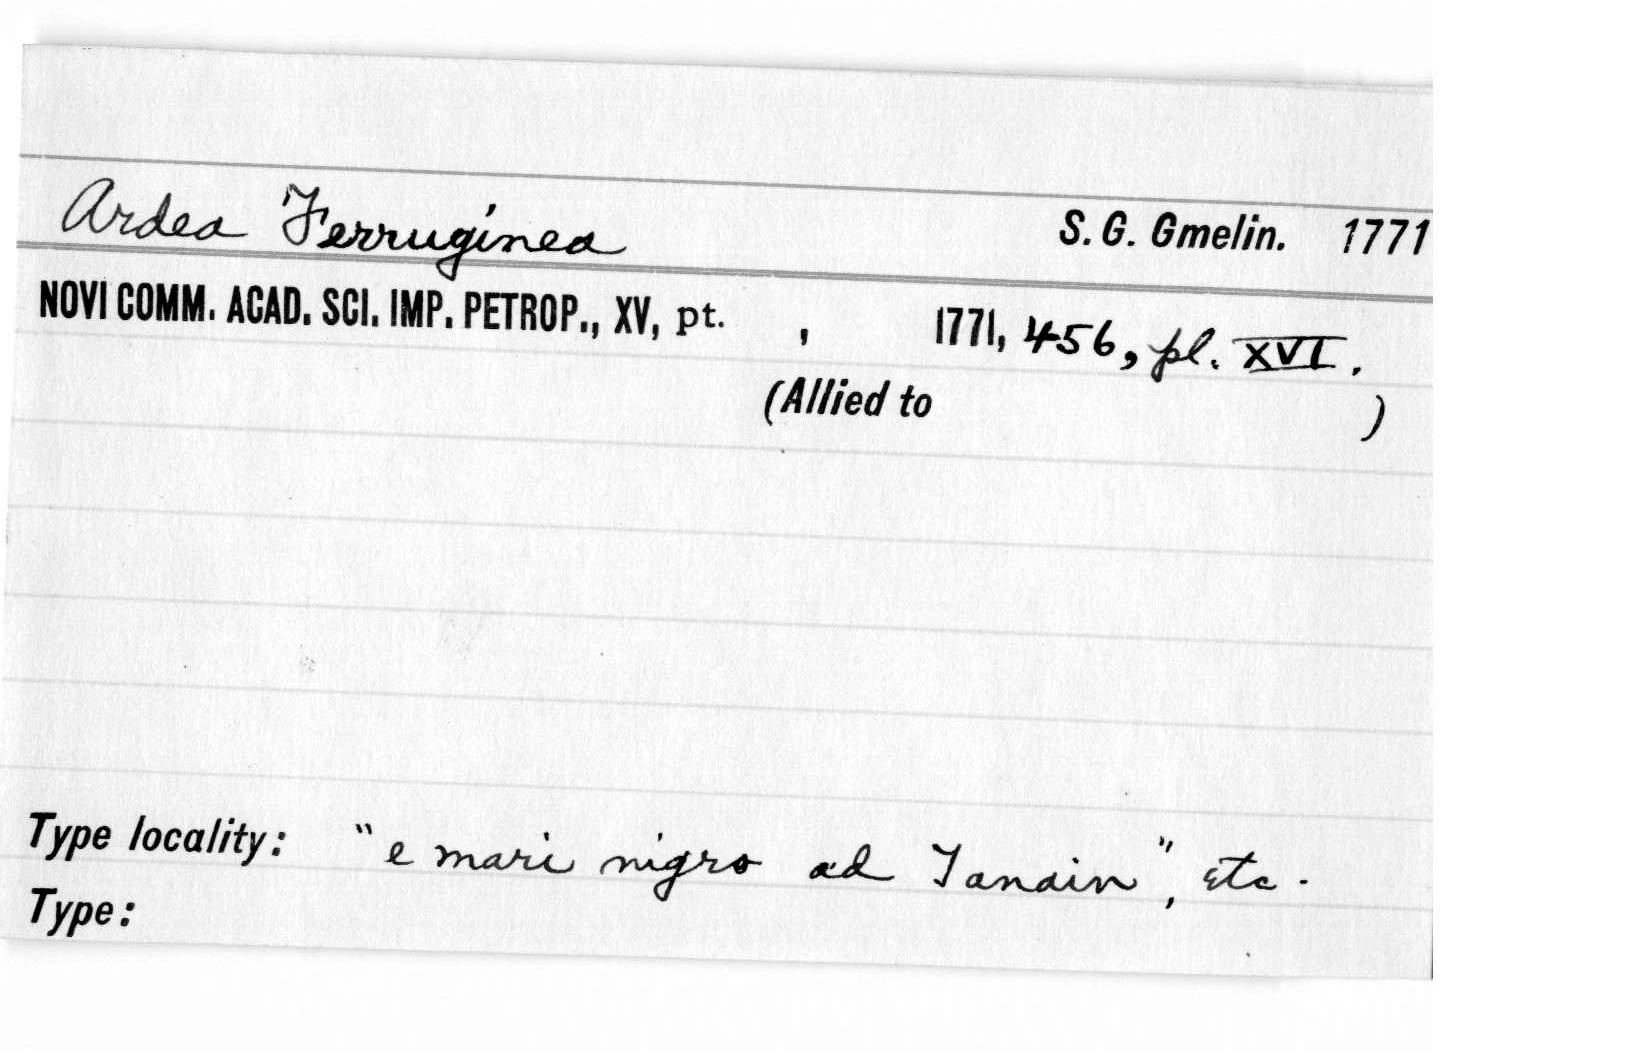 Ardea Ferruginea S. G. Gmelin. 1771
NOVI COMM. ACAD. SCI. IMP. PETROP., XV, pt. , 1771, 456, pl. XVI.
(Allied to )
Type locality: "e mari nigro ad Tanain", etc.
Type: